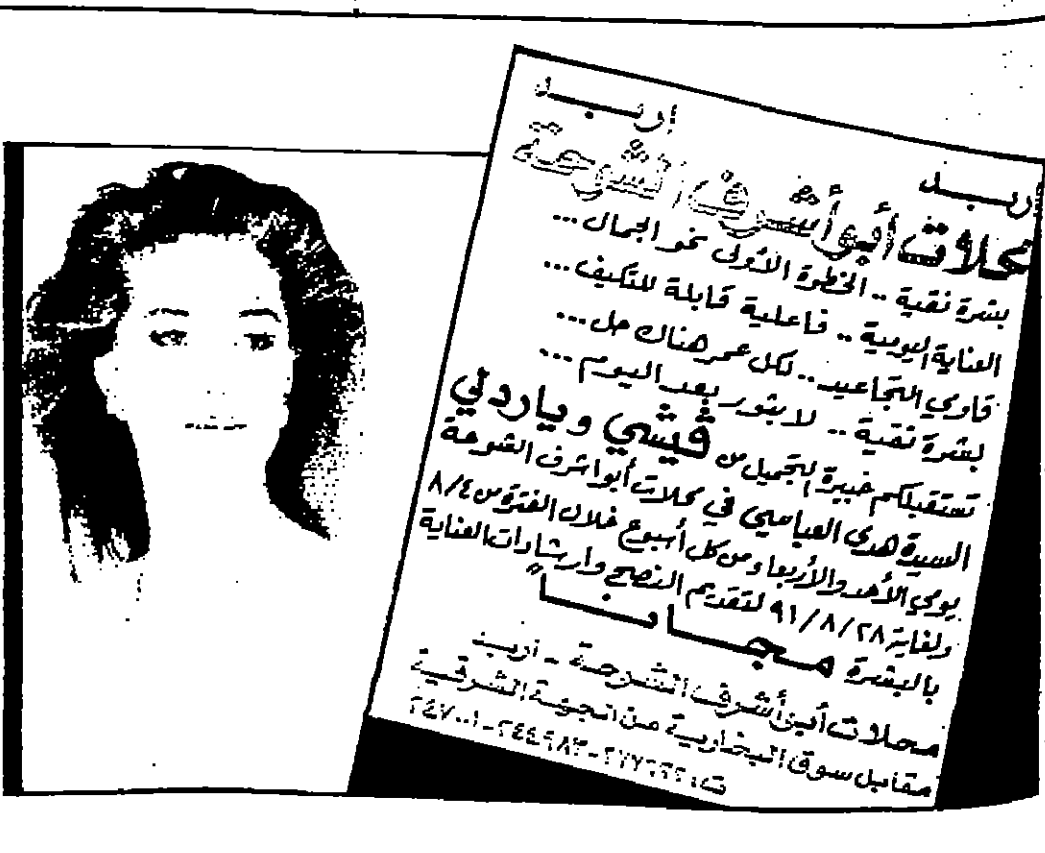 إربد
إربد
محلات أبو أشرف الشوحة
بشرة نقية .. الخطوة الأولى نحو الجمال ...
العناية اليومية .. فاعلية قابلة للتكيف ...
قاومي التجاعيد .. لكل عمر هناك حل ...
بشرة نقية .. لا بثور بعد اليوم ...
تستقبلكم خبيرة التجميل من فيشي وياردلي
السيدة هدى العباسي في محلات أبو اشرف الشوحة
يومي الأحد والأربعاء من كل أسبوع خلال الفترة من ٨/٤
ولغاية ٩١/٨/٢٨ لتقديم النصح وارشادات العناية
بالبشرة مجاناً
محلات أبو أشرف الشوحة - أربد
مقابل سوق البخارية من الجهة الشرقية
ت: ٢٤٤٩٨٣ - ٢٤٧٠٠١